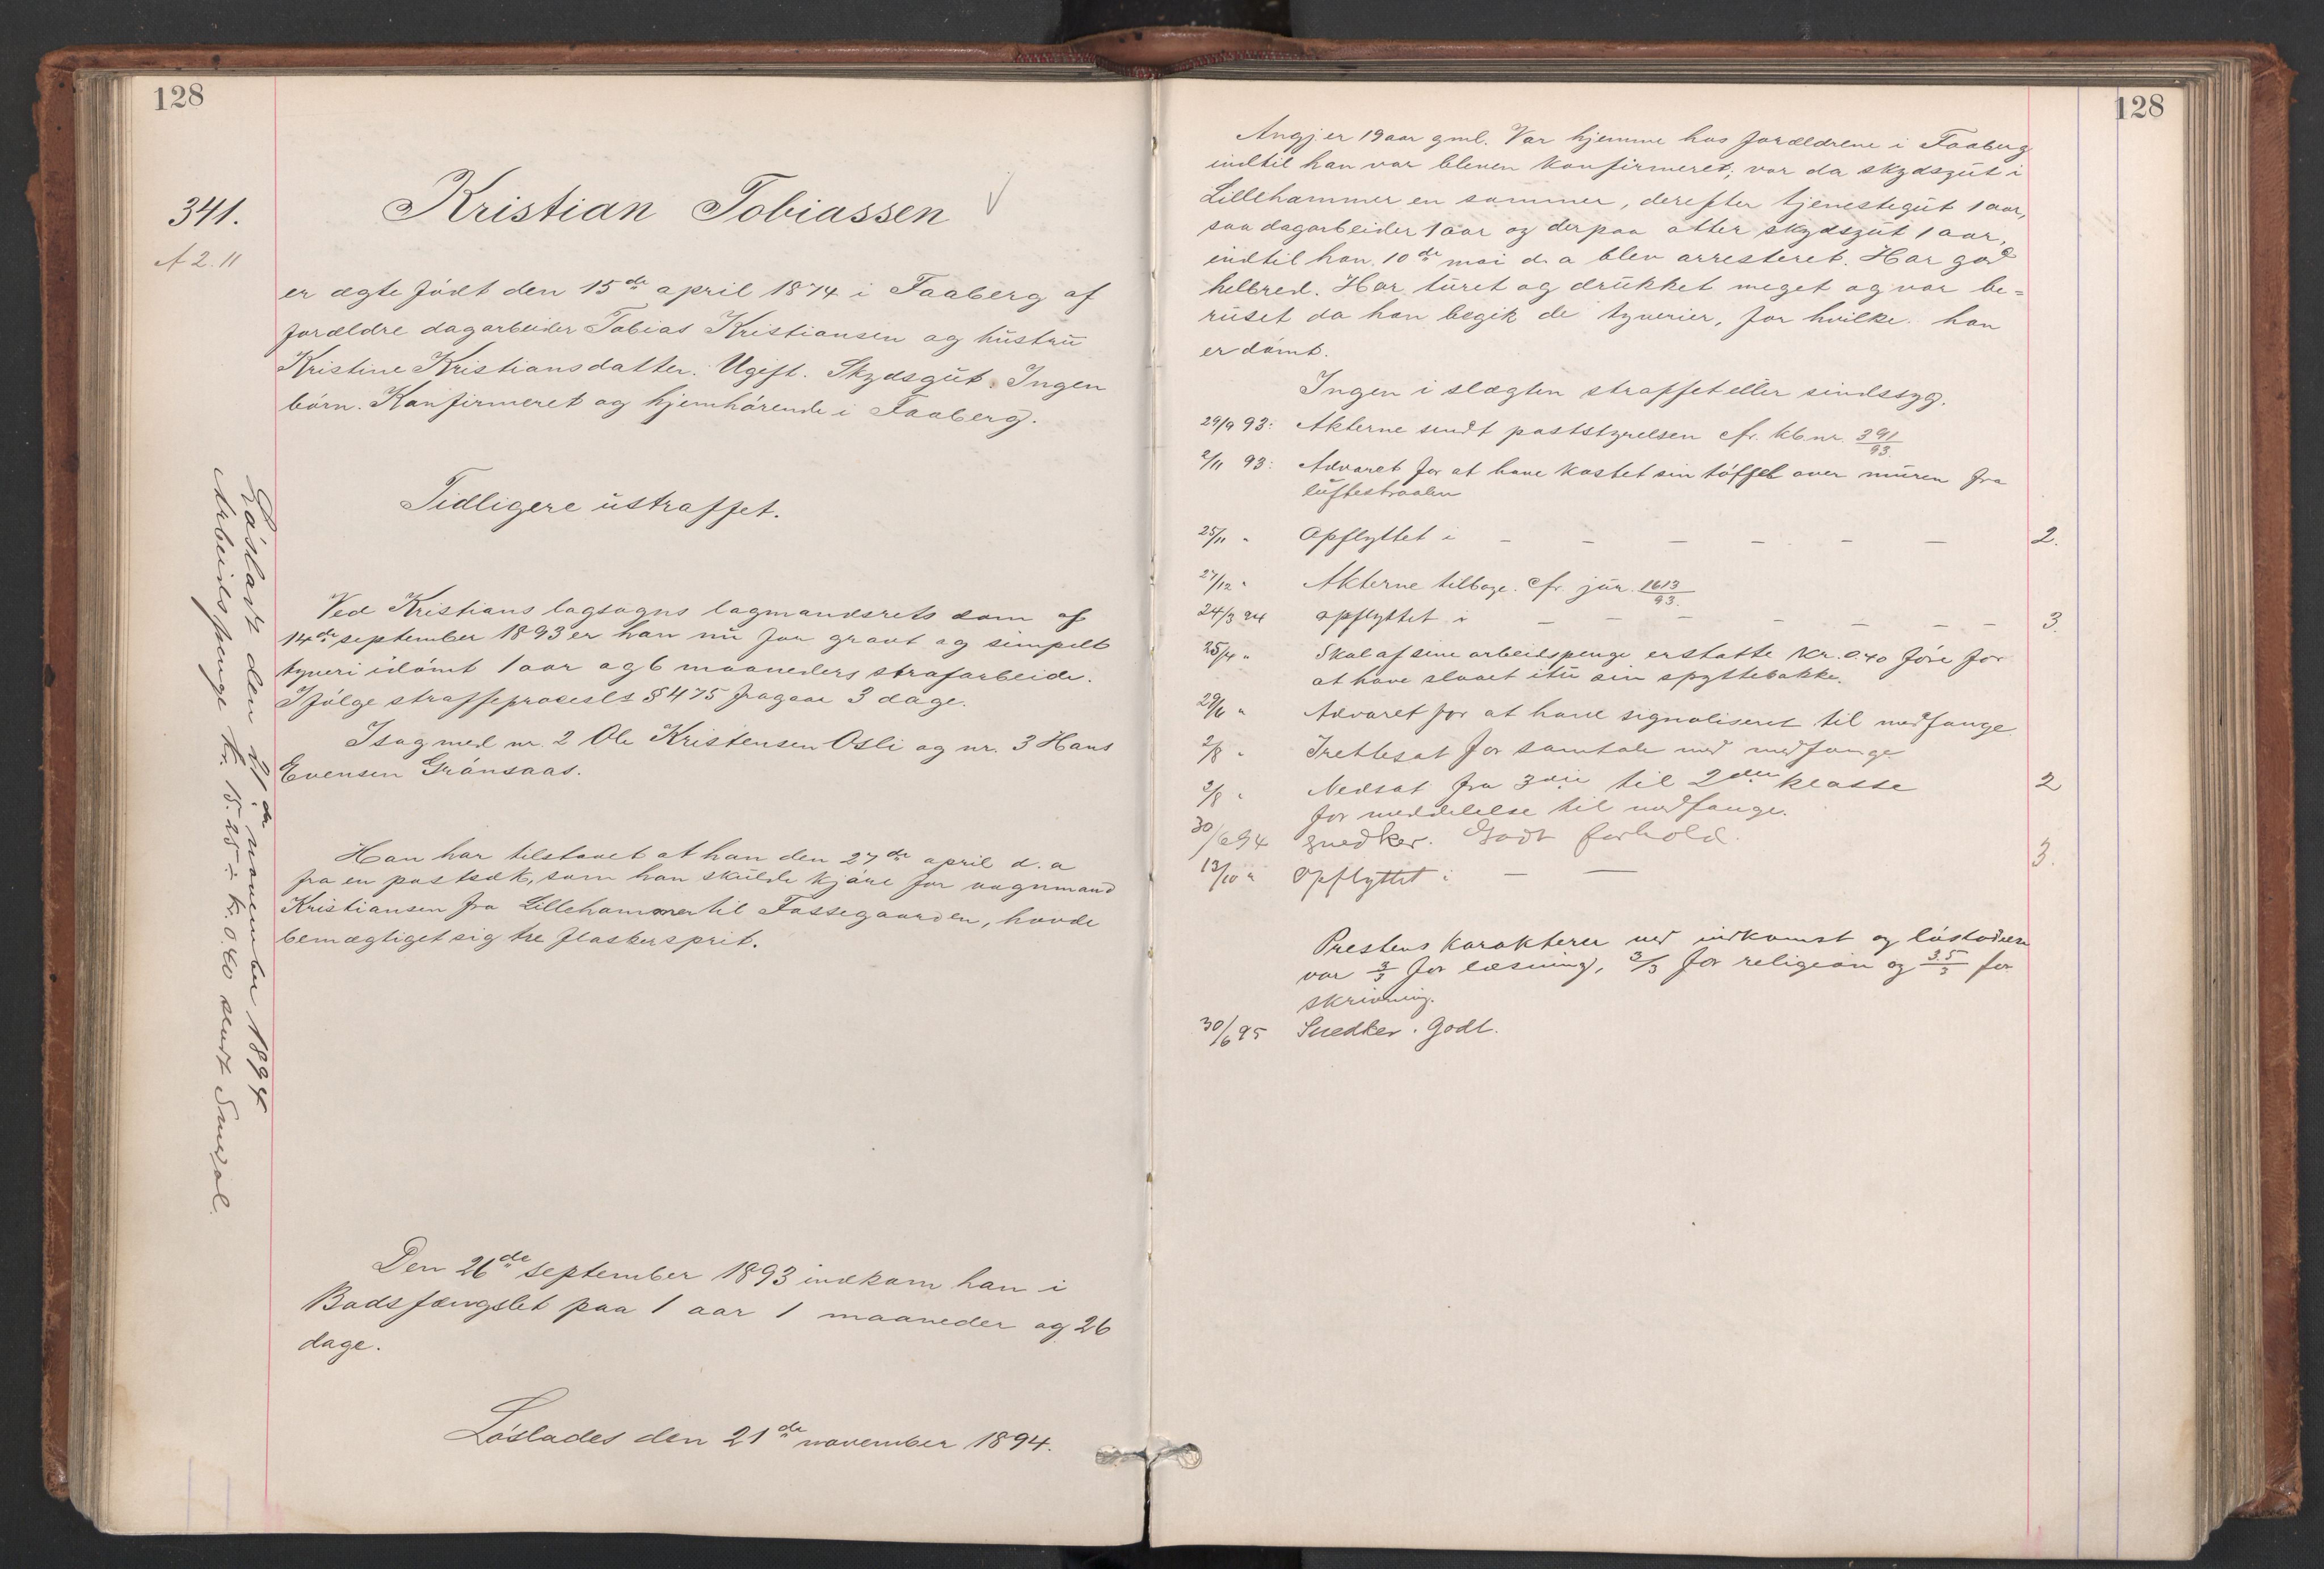 128
341.
A 2. 11
Kristian Tobiassen
er ægte födt den 15de april 1874 i Faaberg af
forældre dagarbeider Tobias Kristiansen og hustru
Kristine Kristiansdatter. Ugift. Skydsgut. Ingen
börn. Konfirmeret og hjemhörende i Faaberg.
Tidligere ustraffet.
Ved Kristians lagsogns lagmandsrets dom af
14de september 1893 er han nu for grovt og simpelt
tyveri idömt 1 aar og 6 maaneders strafarbeide.
Ifölge straffeprocesls § 475 fragaar 3 dage.
Isag med nr. 2 Ole Kristensen Osli og nr. 3 Hans
Evensen Grönsaas.
Han har tilstaaet at han den 27de april d. a
fra en postsæk, som han skulde kjöre for vognmand
Kristiansen fra Lillehammer til Fossegaarden, havde
bemægtiget sig tre flasker sprit.
Den 26de september 1893 indkom han i
Bodsfængslet paa 1 aar 1 maaneder og 26
dage.
Löslades den 21de november 1894.
Lösladt den 21de november 1894
Arbeidspenge kr. 15.25 ÷ kr. 0.40 sendt
128
Angj er 19 aar gml. Var hjemme hos forældrene i Faaberg
indtil han var bleven konfirmeret; var da skydsgut i
Lillehammer en sommer, derefter tjenestegut 1 aar,
saa dagarbeider 1 aar og derpaa atter skydsgut 1 aar,
indtil han 10de mai d. a blev arresteret. Har god
helbred. Har turet og drukket meget og var be=
ruset da han begik de tyverier, for hvilke han
er dömt.
Ingen i slægten straffet eller sindssyg.
29/9 93: Akterne sendt poststyrelsen cfr. kb nr. 391/93.
2/11 93: Advaret for at have kastet sin töffel over muren fra
luftestraalen
25/11 " Opflyttet i – – – – – – 2.
27/12 " Akterne tilbage. cfr. jur. 1613/93.
24/3 94 opflyttet i – – – – – – – 3.
25/4 " Skal af sine arbeidspenge erstatte kr. 0.40 före for
at have slaaet itu sin spyttebakke.
29/6 " Advaret for at have signaliseret til medfange
2/8 " Irettesat for samtale med medfange
2/8 " Nedsat fra 3die til 2den klasse 2
for meddelelse til medfange.
30/6 94 Snedker. Godt forhold.
13/10 " Opflyttet i – – 3.
Prestens karakterer ved indkomst og lösladelse
var 3/3 for læsning, 3/3 for religion og 3.5/3 for
skrivning.
30/6 95 Snedker. Godt.